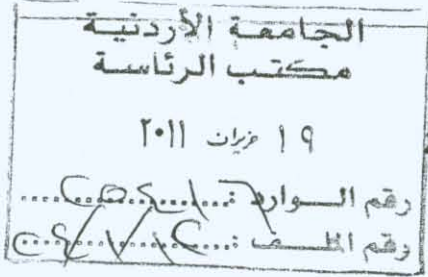 الجامعة الأردنية
مكتب الرئاسة
١٩ حزيران ٢٠١١
رقم الوارد :
رقم الملف :